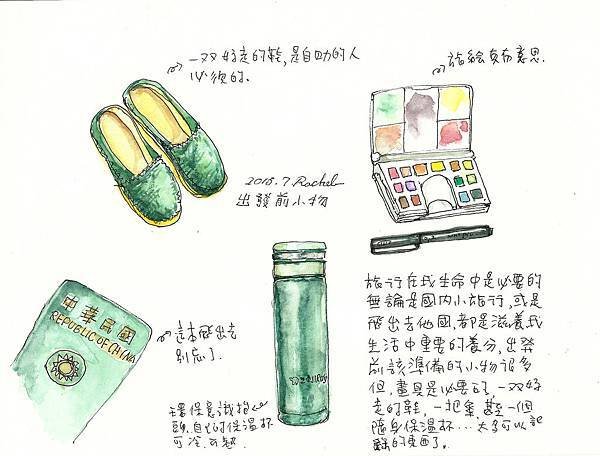 一双好走的鞋,是自助的人
必須的.
旅繪真有意思.
2016.7 Rachel
出發前小物
中華民國
REPUBLIC OF CHINA
這本飛出去
別忘了.
環保意識抬
頭,自己的保溫杯
可冷可熱
旅行在我生命中是必要的
無論是國内小旅行,或是
飛出去他國,都是滋養我
生活中重要的養分,出發
前該準備的小物很多
但,畫具是必要的,一双好
走的鞋,一把傘,甚至一個
隨身保溫杯...太多可以記
錄的東西了.